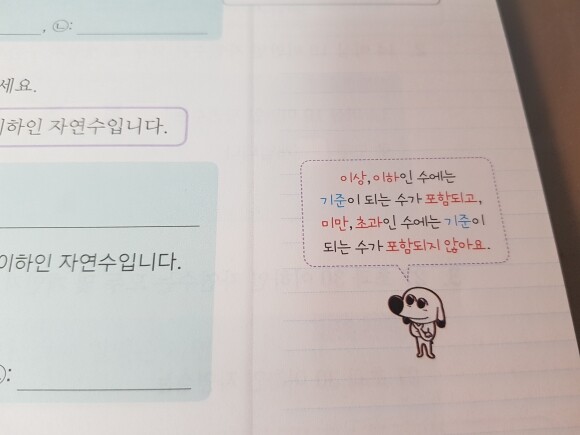 , ㉡:
세요.
이하인 자연수입니다.
이하인 자연수입니다.
:
이상, 이하인 수에는
기준이 되는 수가 포함되고,
미만, 초과인 수에는 기준이
되는 수가 포함되지 않아요.